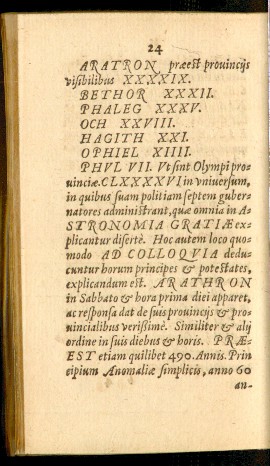 24
ARATRON præest prouincijs
visibilibus XXXXIX.
BETHOR XXXII.
PHALEG XXXV.
OCH XXVIII.
HAGITH XXI.
OPHIEL XIIII.
PHVL VII. Vt sint Olympi pro-
uinciæ. CLXXXXVI in vniuersum,
in quibus suam politiam septem guber-
natores administrant, quæ omnia in A-
STRONOMIA GRATIÆ ex-
plicantur disertè. Hoc autem loco quo-
modo AD COLLOQVIA dedu-
cuntur horum principes & potestates,
explicandum est. ARATHRON
in Sabbato & hora prima diei apparet,
ac responsa dat de suis prouincijs & pro-
uincialibus verissimè. Similiter & alij
ordine in suis diebus & horis. PRÆ-
EST etiam quilibet 490. Annis. Prin
cipium Anomaliæ simplicis, anno 60
an-